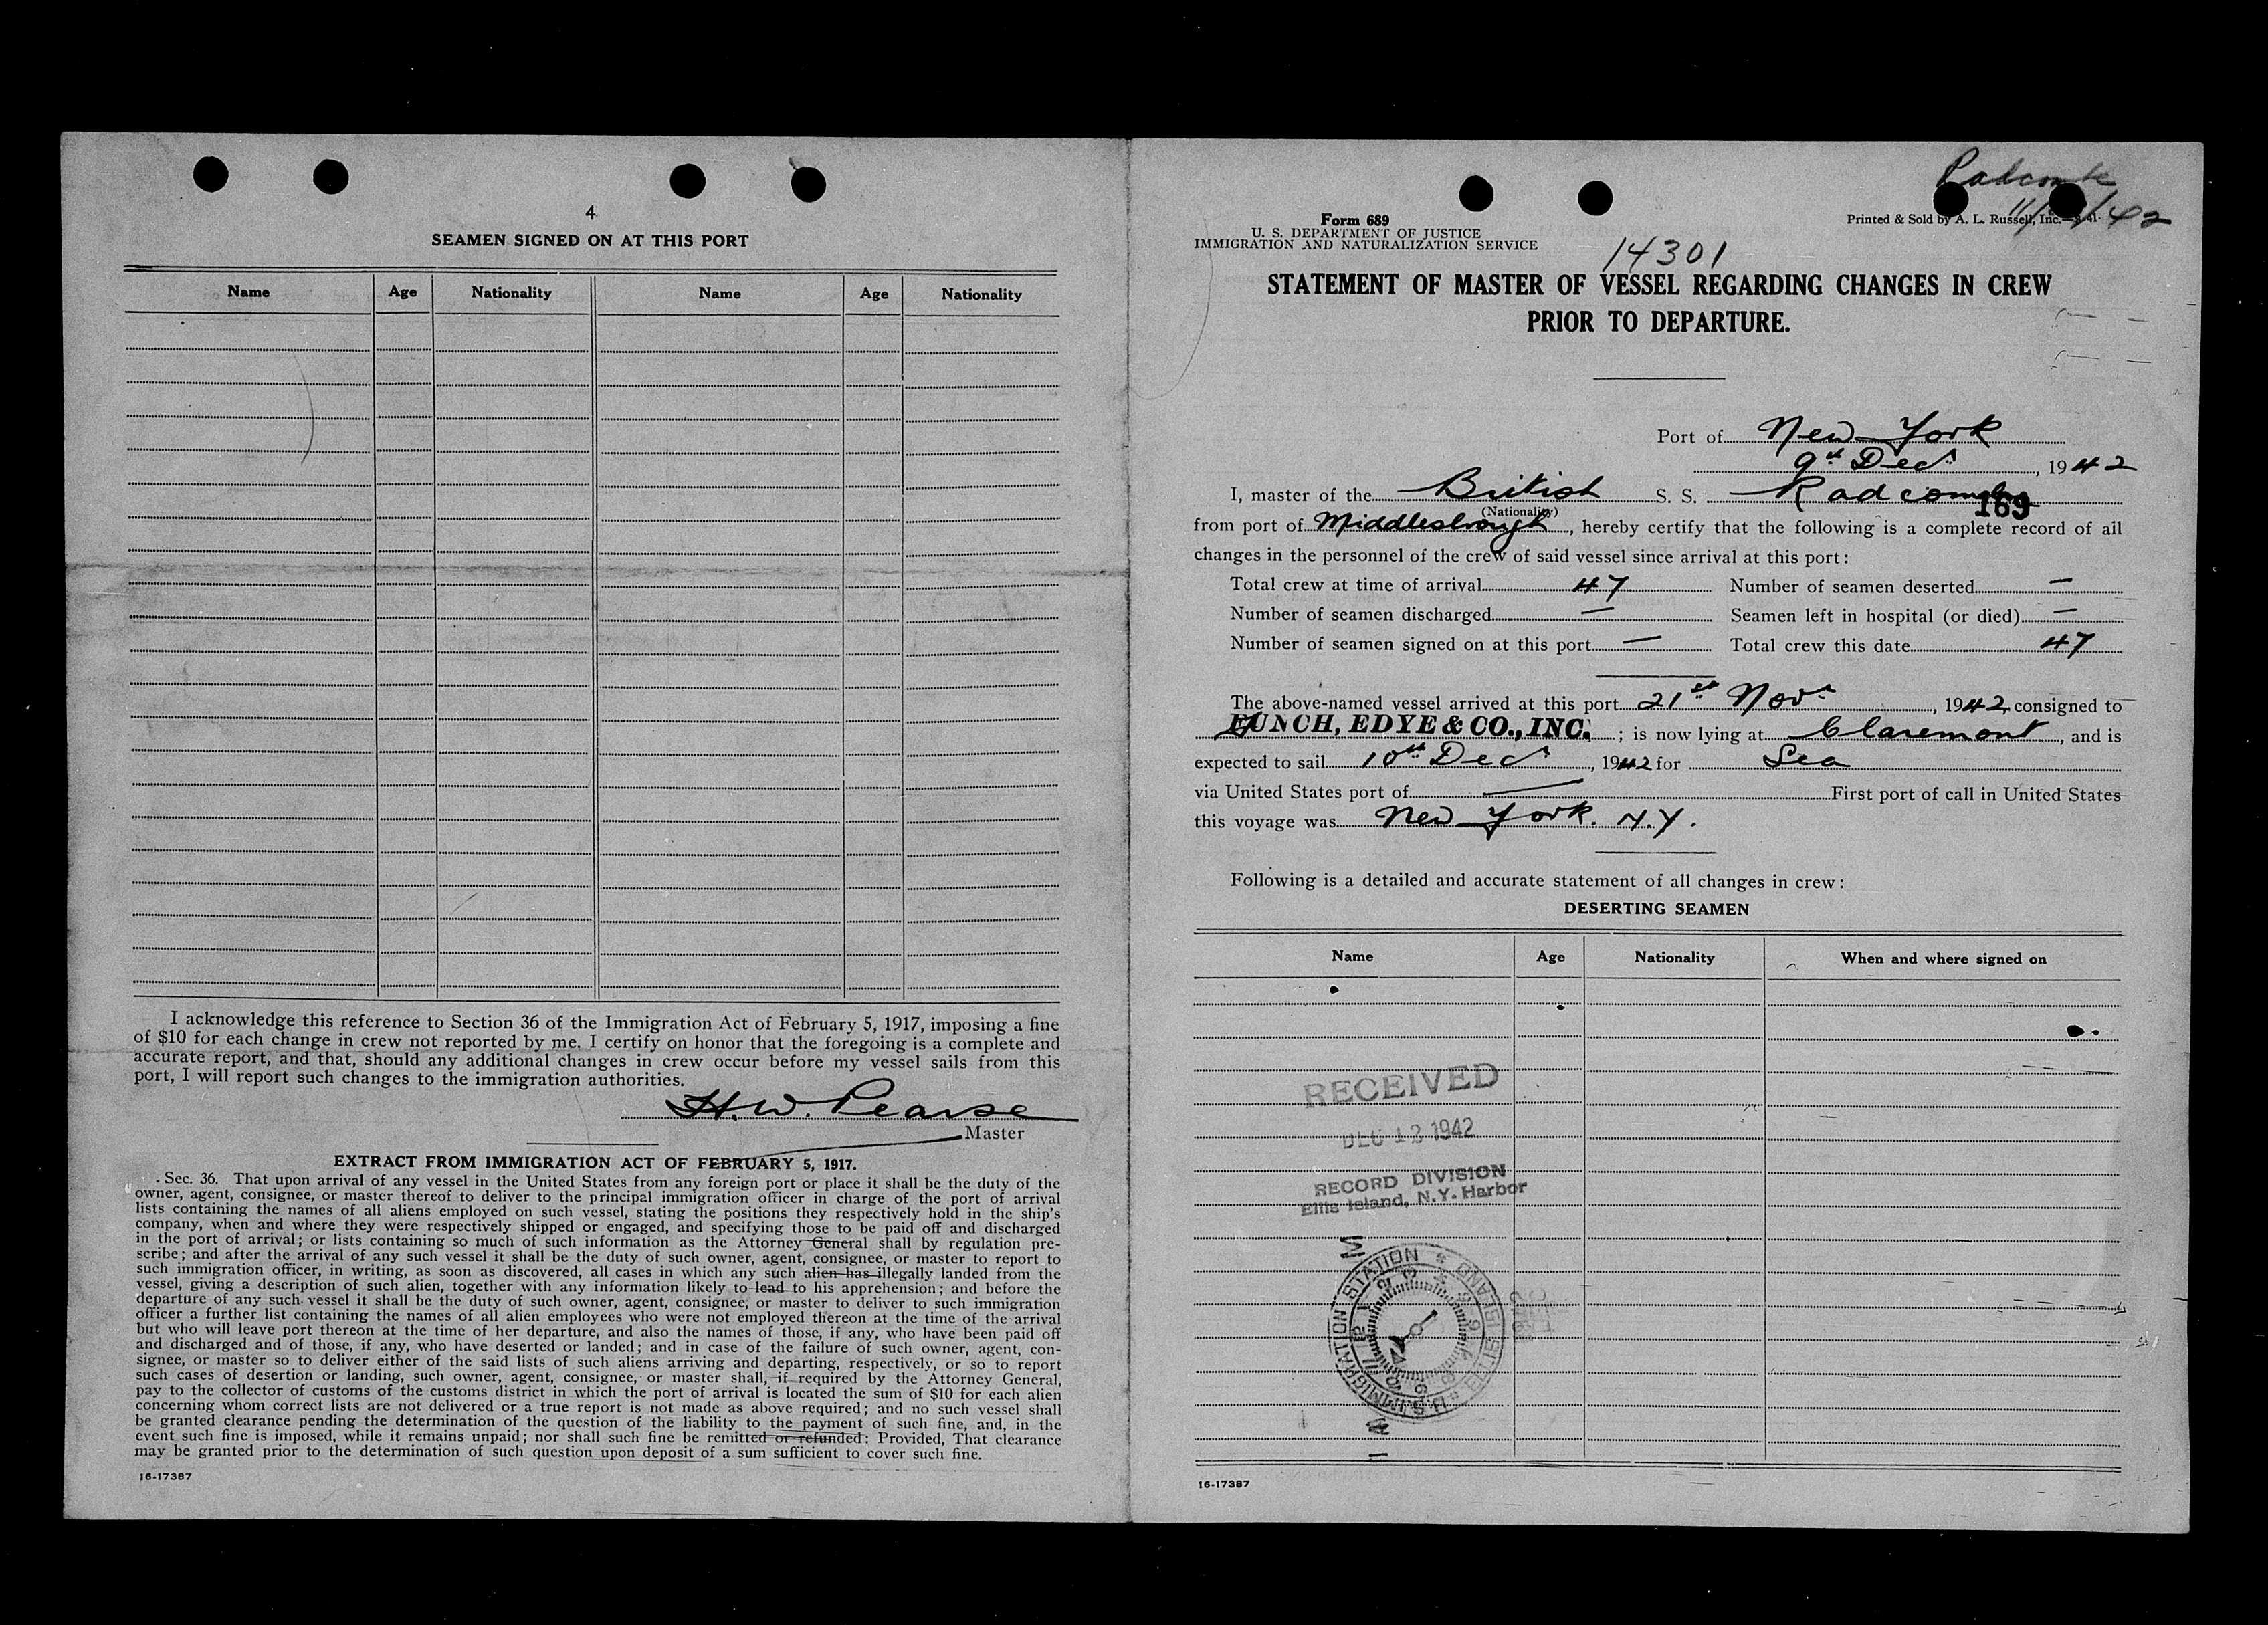 4
SEAMEN SIGNED ON AT THIS PORT
Name Age Nationality Name Age Nationality
I acknowledge this reference to Section 36 of the Immigration Act of February 5, 1917, imposing a fine
of $10 for each change in crew not reported by me. I certify on honor that the foregoing is a complete and
accurate report, and that, should any additional changes in crew occur before my vessel sails from this
port, I will report such changes to the immigration authorities.
H. W. Pearse
Master
EXTRACT FROM IMMIGRATION ACT OF FEBRUARY 5, 1917.
Sec. 36. That upon arrival of any vessel in the United States from any foreign port or place it shall be the duty of the
owner, agent, consignee, or master thereof to deliver to the principal immigration officer in charge of the port of arrival
lists containing the names of all aliens employed on such vessel, stating the positions they respectively hold in the ship's
company, when and where they were respectively shipped or engaged, and specifying those to be paid off and discharged
in the port of arrival; or lists containing so much of such information as the Attorney General shall by regulation pre-
scribe; and after the arrival of any such vessel it shall be the duty of such owner, agent, consignee, or master to report to
such immigration officer, in writing, as soon as discovered, all cases in which any such alien has illegally landed from the
vessel, giving a description of such alien, together with any information likely to lead to his apprehension; and before the
departure of any such vessel it shall be the duty of such owner, agent, consignee, or master to deliver to such immigration
officer a further list containing the names of all alien employees who were not employed thereon at the time of the arrival
but who will leave port thereon at the time of her departure, and also the names of those, if any, who have been paid off
and discharged and of those, if any, who have deserted or landed; and in case of the failure of such owner, agent, con-
signee, or master so to deliver either of the said lists of such aliens arriving and departing, respectively, or so to report
such cases of desertion or landing, such owner, agent, consignee, or master shall, if required by the Attorney General,
pay to the collector of customs of the customs district in which the port of arrival is located the sum of $10 for each alien
concerning whom correct lists are not delivered or a true report is not made as above required; and no such vessel shall
be granted clearance pending the determination of the question of the liability to the payment of such fine, and, in the
event such fine is imposed, while it remains unpaid; nor shall such fine be remitted or refunded: Provided, That clearance
may be granted prior to the determination of such question upon deposit of a sum sufficient to cover such fine.
16-17387
Form 689
U. S. DEPARTMENT OF JUSTICE
IMMIGRATION AND NATURALIZATION SERVICE
Printed & Sold by A. L. Russell, Inc.
14301
STATEMENT OF MASTER OF VESSEL REGARDING CHANGES IN CREW
PRIOR TO DEPARTURE.
Port of New York
9th Decr, 1942
I, master of the British S. S. Radcombe
(Nationality)
169
from port of Middlesbrough, hereby certify that the following is a complete record of all
changes in the personnel of the crew of said vessel since arrival at this port:
Total crew at time of arrival 47 Number of seamen deserted —
Number of seamen discharged — Seamen left in hospital (or died) —
Number of seamen signed on at this port — Total crew this date 47
The above-named vessel arrived at this port 21st Novr, 1942, consigned to
FUNCH, EDYE & CO., INC.; is now lying at Claremont, and is
expected to sail 10th Decr, 1942 for Sea
via United States port of — First port of call in United States
this voyage was New York. N.Y.
Following is a detailed and accurate statement of all changes in crew:
DESERTING SEAMEN
Name Age Nationality When and where signed on
RECEIVED
DEC 12 1942
RECORD DIVISION
Ellis Island, N.Y. Harbor
U.S. IMMIGRATION STATION * ELLIS ISLAND *
16-17387